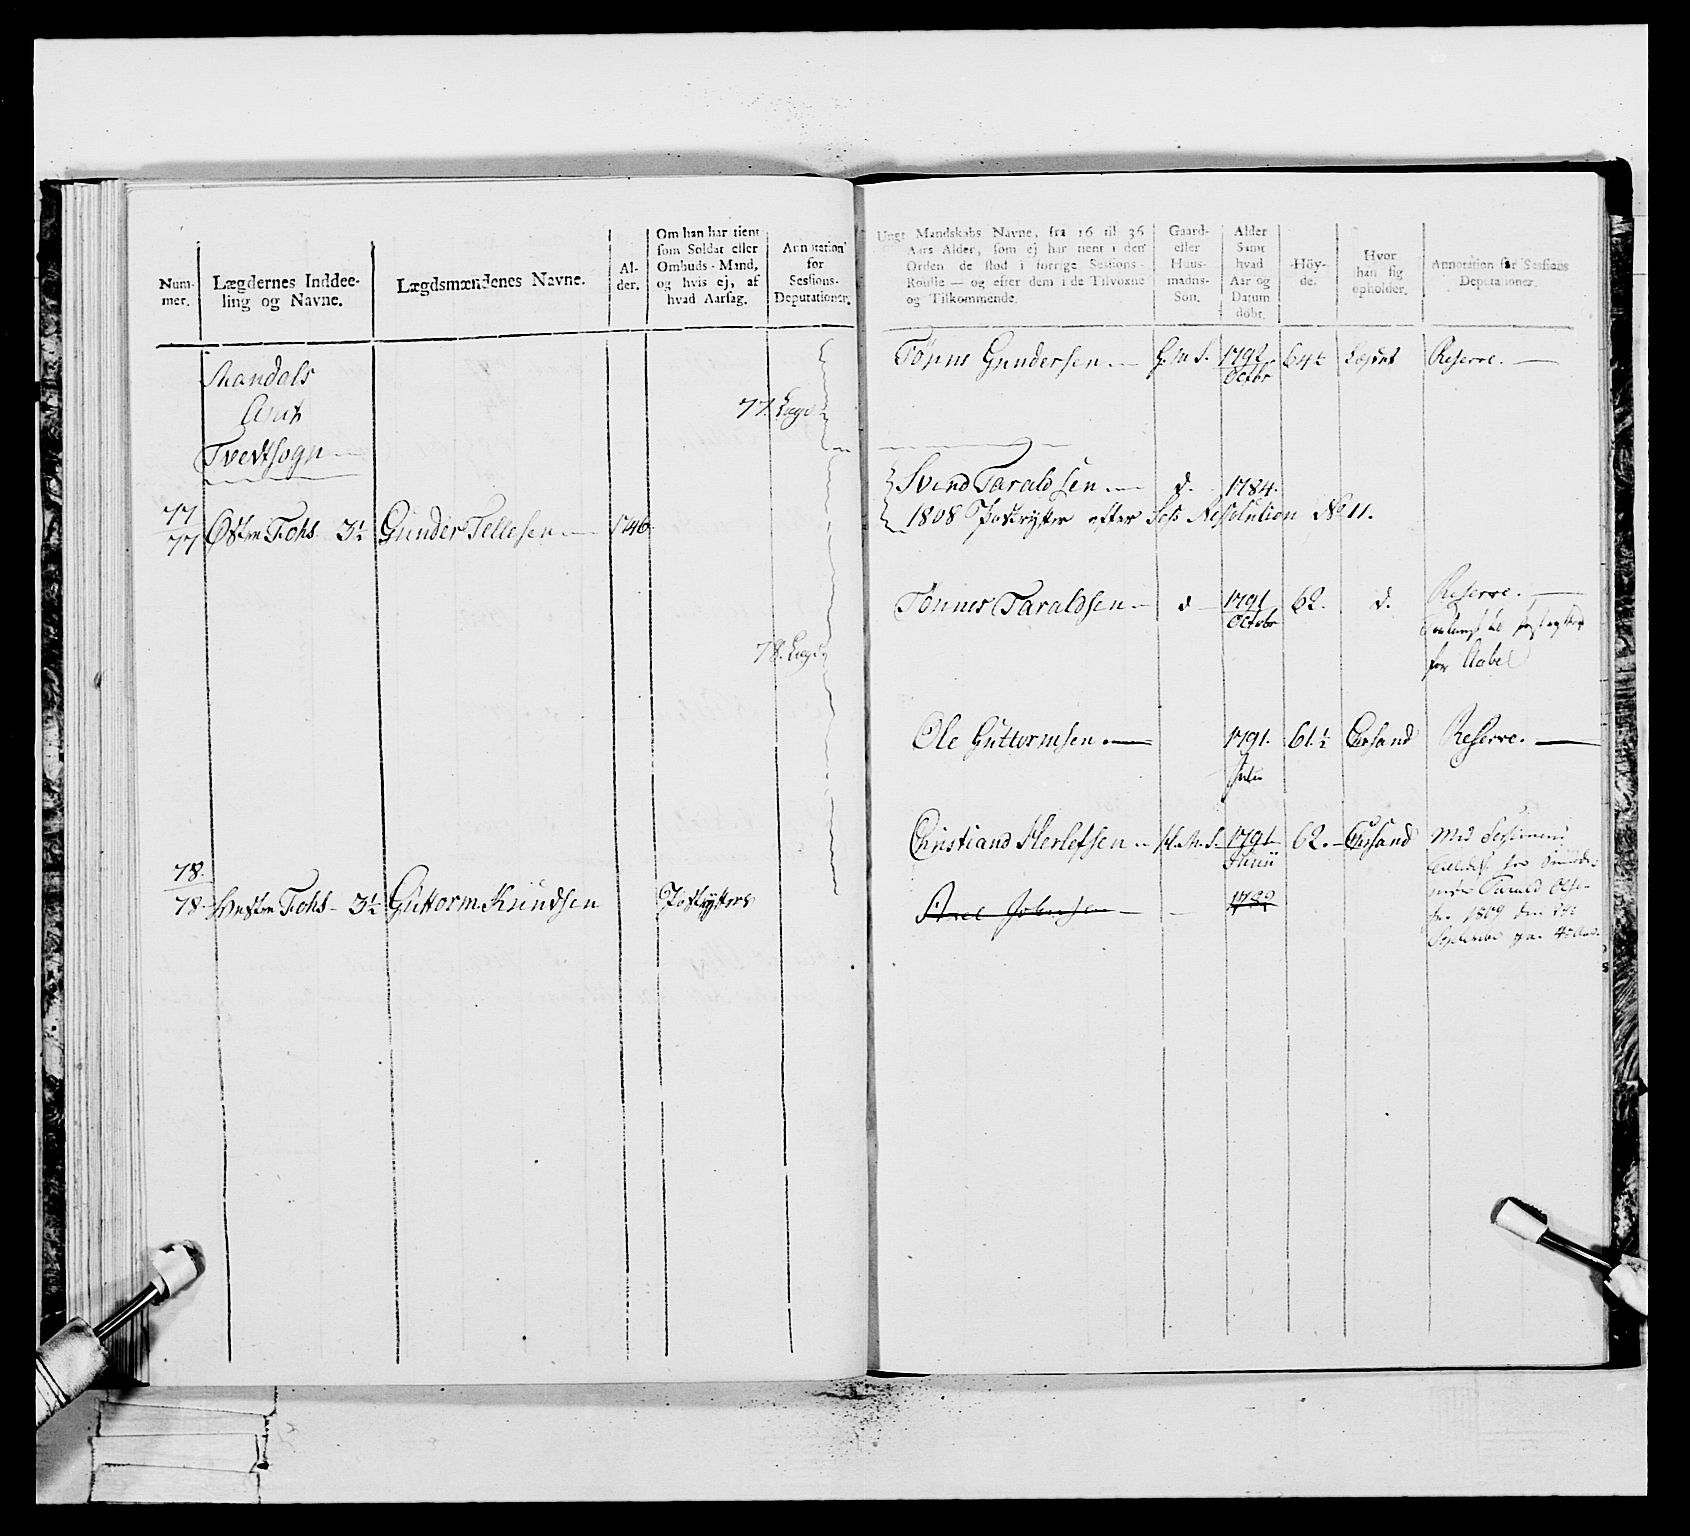 Num-
mer.
Lægdernes Inddee-
ling og Navne.
Lægdsmændenes Navne.
Al-
der.
Om han har tient
som Soldat eller
Ombuds-Mand,
og hvis ej, af
hvad Aarsag.
Annotation
for
Sessions-
Deputationer.
Mandals
Amt
Tvedtsogn
77 Lægd
77
77 Østre Fohs 3½ Gunder Tellefsen 46
78. Lægd
78.
78. Fohs 3½ Guttorm Knudsen
Ungt Mandskabs Navne, fra 16 til 36
Aars Alder, som ej har tient i den
Orden de stod i forrige Sessions-
Roulle — og efter dem i de Tilvoxne
og Tilkommende.
Gaard-
eller
Huus-
mands-
Søn.
Alder
Samt
hvad
Aar og
Datum
døbt.
Höy-
de.
Hvor
han sig
opholder.
Annotation for Sessions
Deputationer.
Tønnes Gundersen G.M.S. 1792 64½ Reserve.
Octbr
Svend Taraldsen d. 1784.
1808 efter Sess Resolution No 11.
Tønnes Taraldsen d 1791 62. d. Reserve.
Octobr
for Aabel
Ole Guttormsen 1791. 61½ Chrsand Reserve.
Christiand Herlofsen H.M.S. 1791 62. Chrsand
Junii
1789
Tarald
1809 den